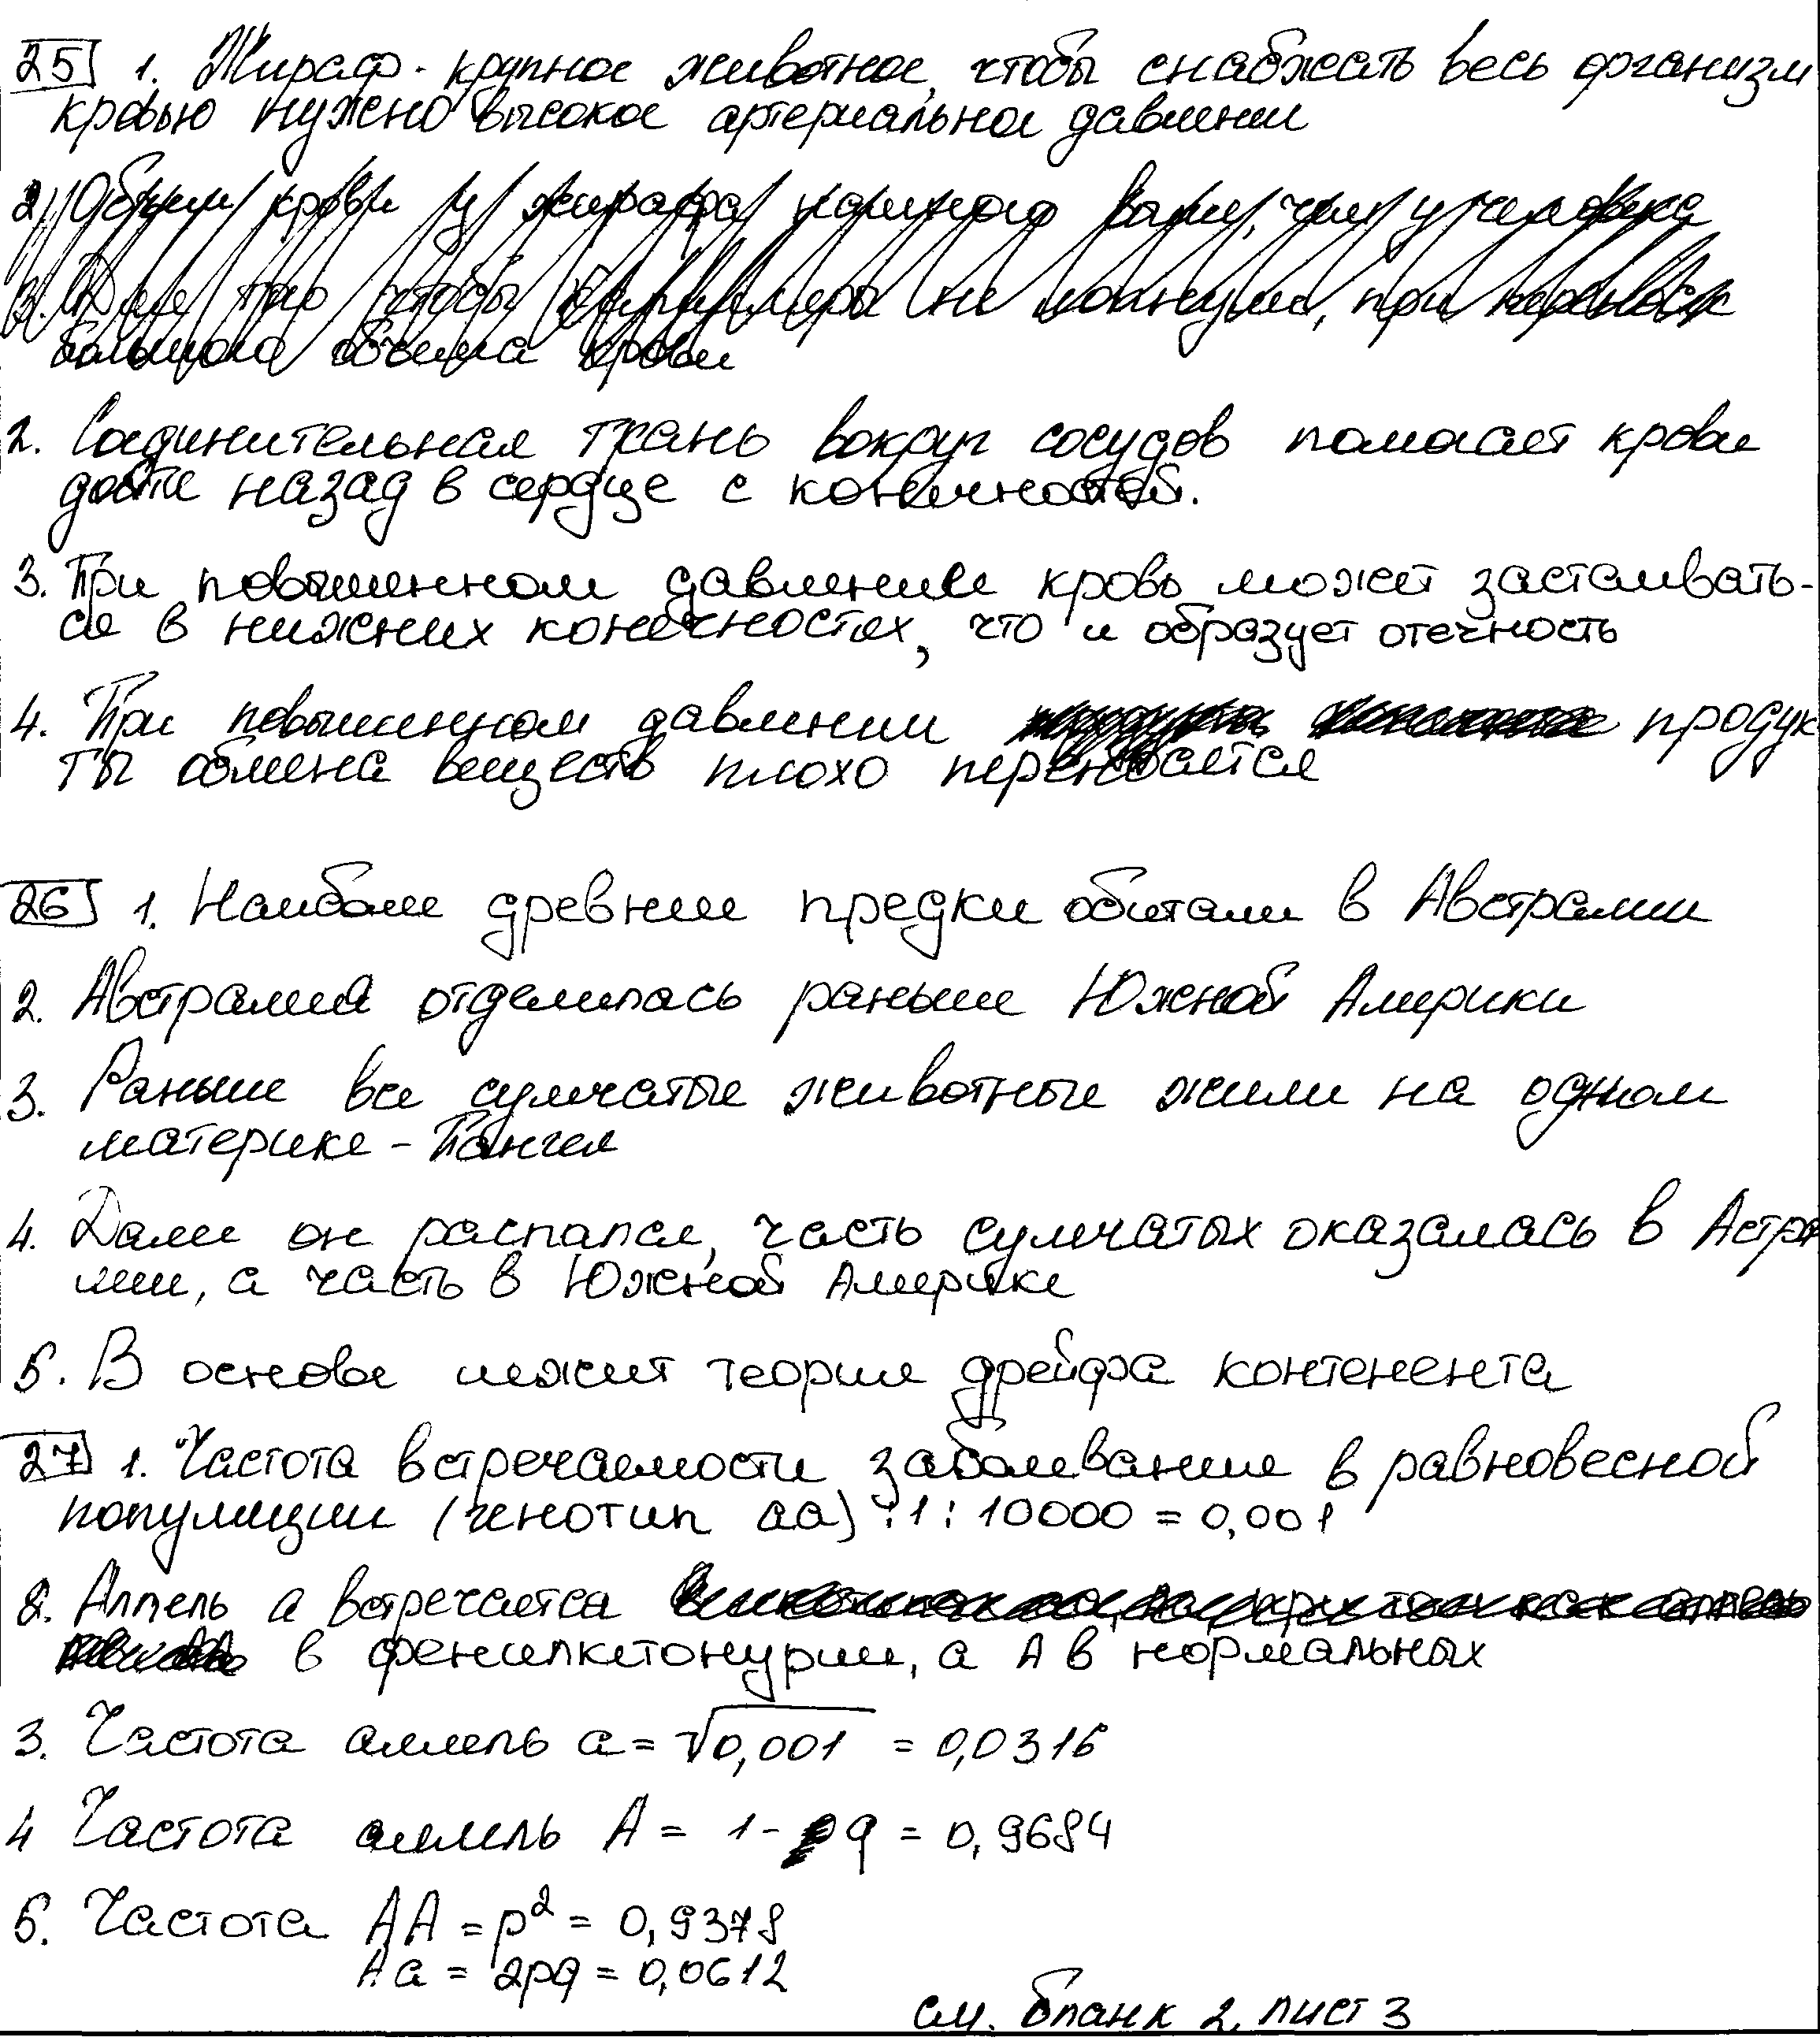 25 1. Жираф - крупное животное, чтобы снабжать весь организм
кровью нужно высокое артериальное давление
2. Объем крови у жирафа намного выше, чем у человека
3. Для того чтобы капилляры не лопнули, при переносе
большого объема крови
2. Соединительная ткань вокруг сосудов помогает крови
дойти назад в сердце с конечностей.
3. При повышенном давлении кровь может застаивать-
ся в нижних конечностях, что и образует отечность
4. При повышенном давлении продук
ты обмена веществ плохо
26 1. Наиболее древние предки обитали в Австралии
2. Австралия отделилась раньше Южной Америки
3. Раньше все сумчатые животные жили на одном
материке - Пангея
4. Далее он распался, часть сумчатых оказалась в Астра
лии, а часть в Южной Америке
5. В основе лежит теория дрейфа контенента
27 1. Частота встречаемости заболевание в равновесной
популяции (генотип аа) : 1 : 10000 = 0,001
2. Аллель а встречается
в фенилкетонурии, а А в нормальных
3. Частота аллель а = √0,001 = 0,0316
4 Частота аллель А = 1 - q = 0,9684
5. Частота АА = p² = 0,9378
Аа = 2pq = 0,0612
см. бланк 2, лист 3